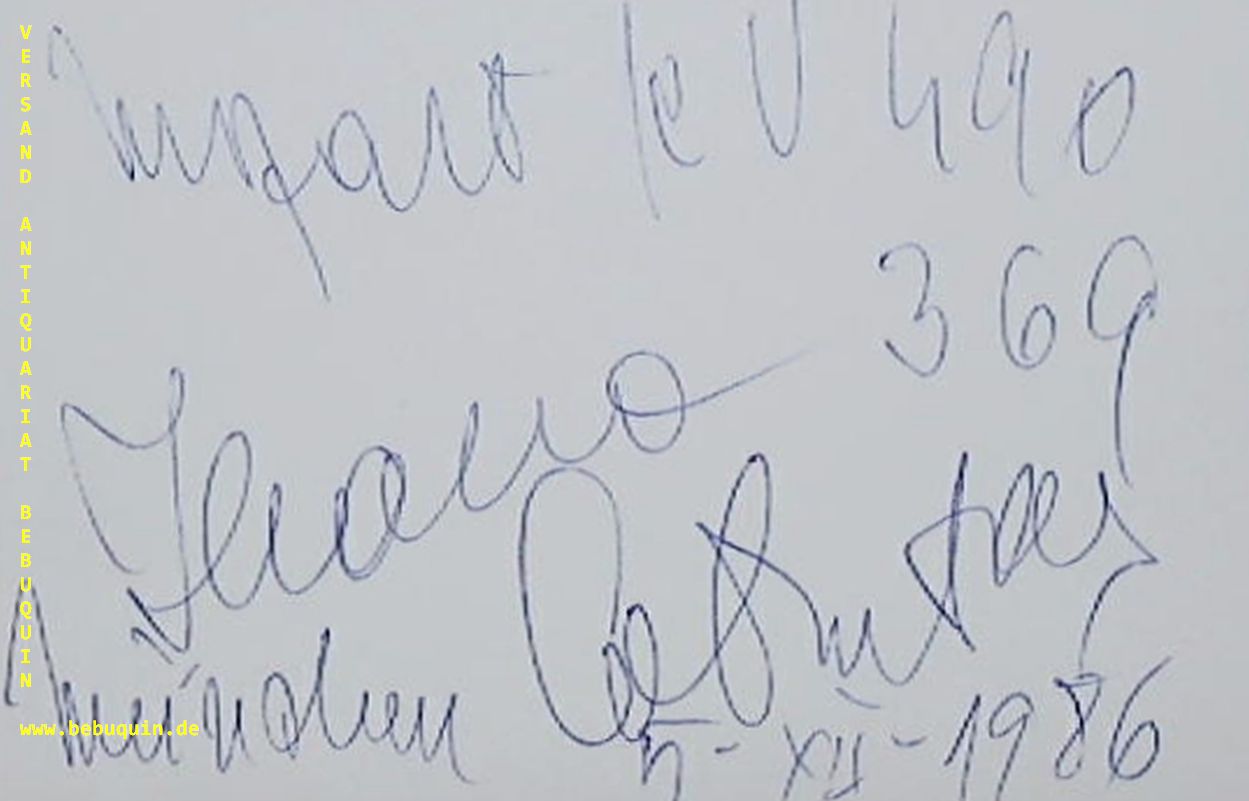 Mozart KV 490
369
Ileana Cotrubas
München 5-XII-1986
VERSAND ANTIQUARIAT BEBUQUIN
www.bebuquin.de